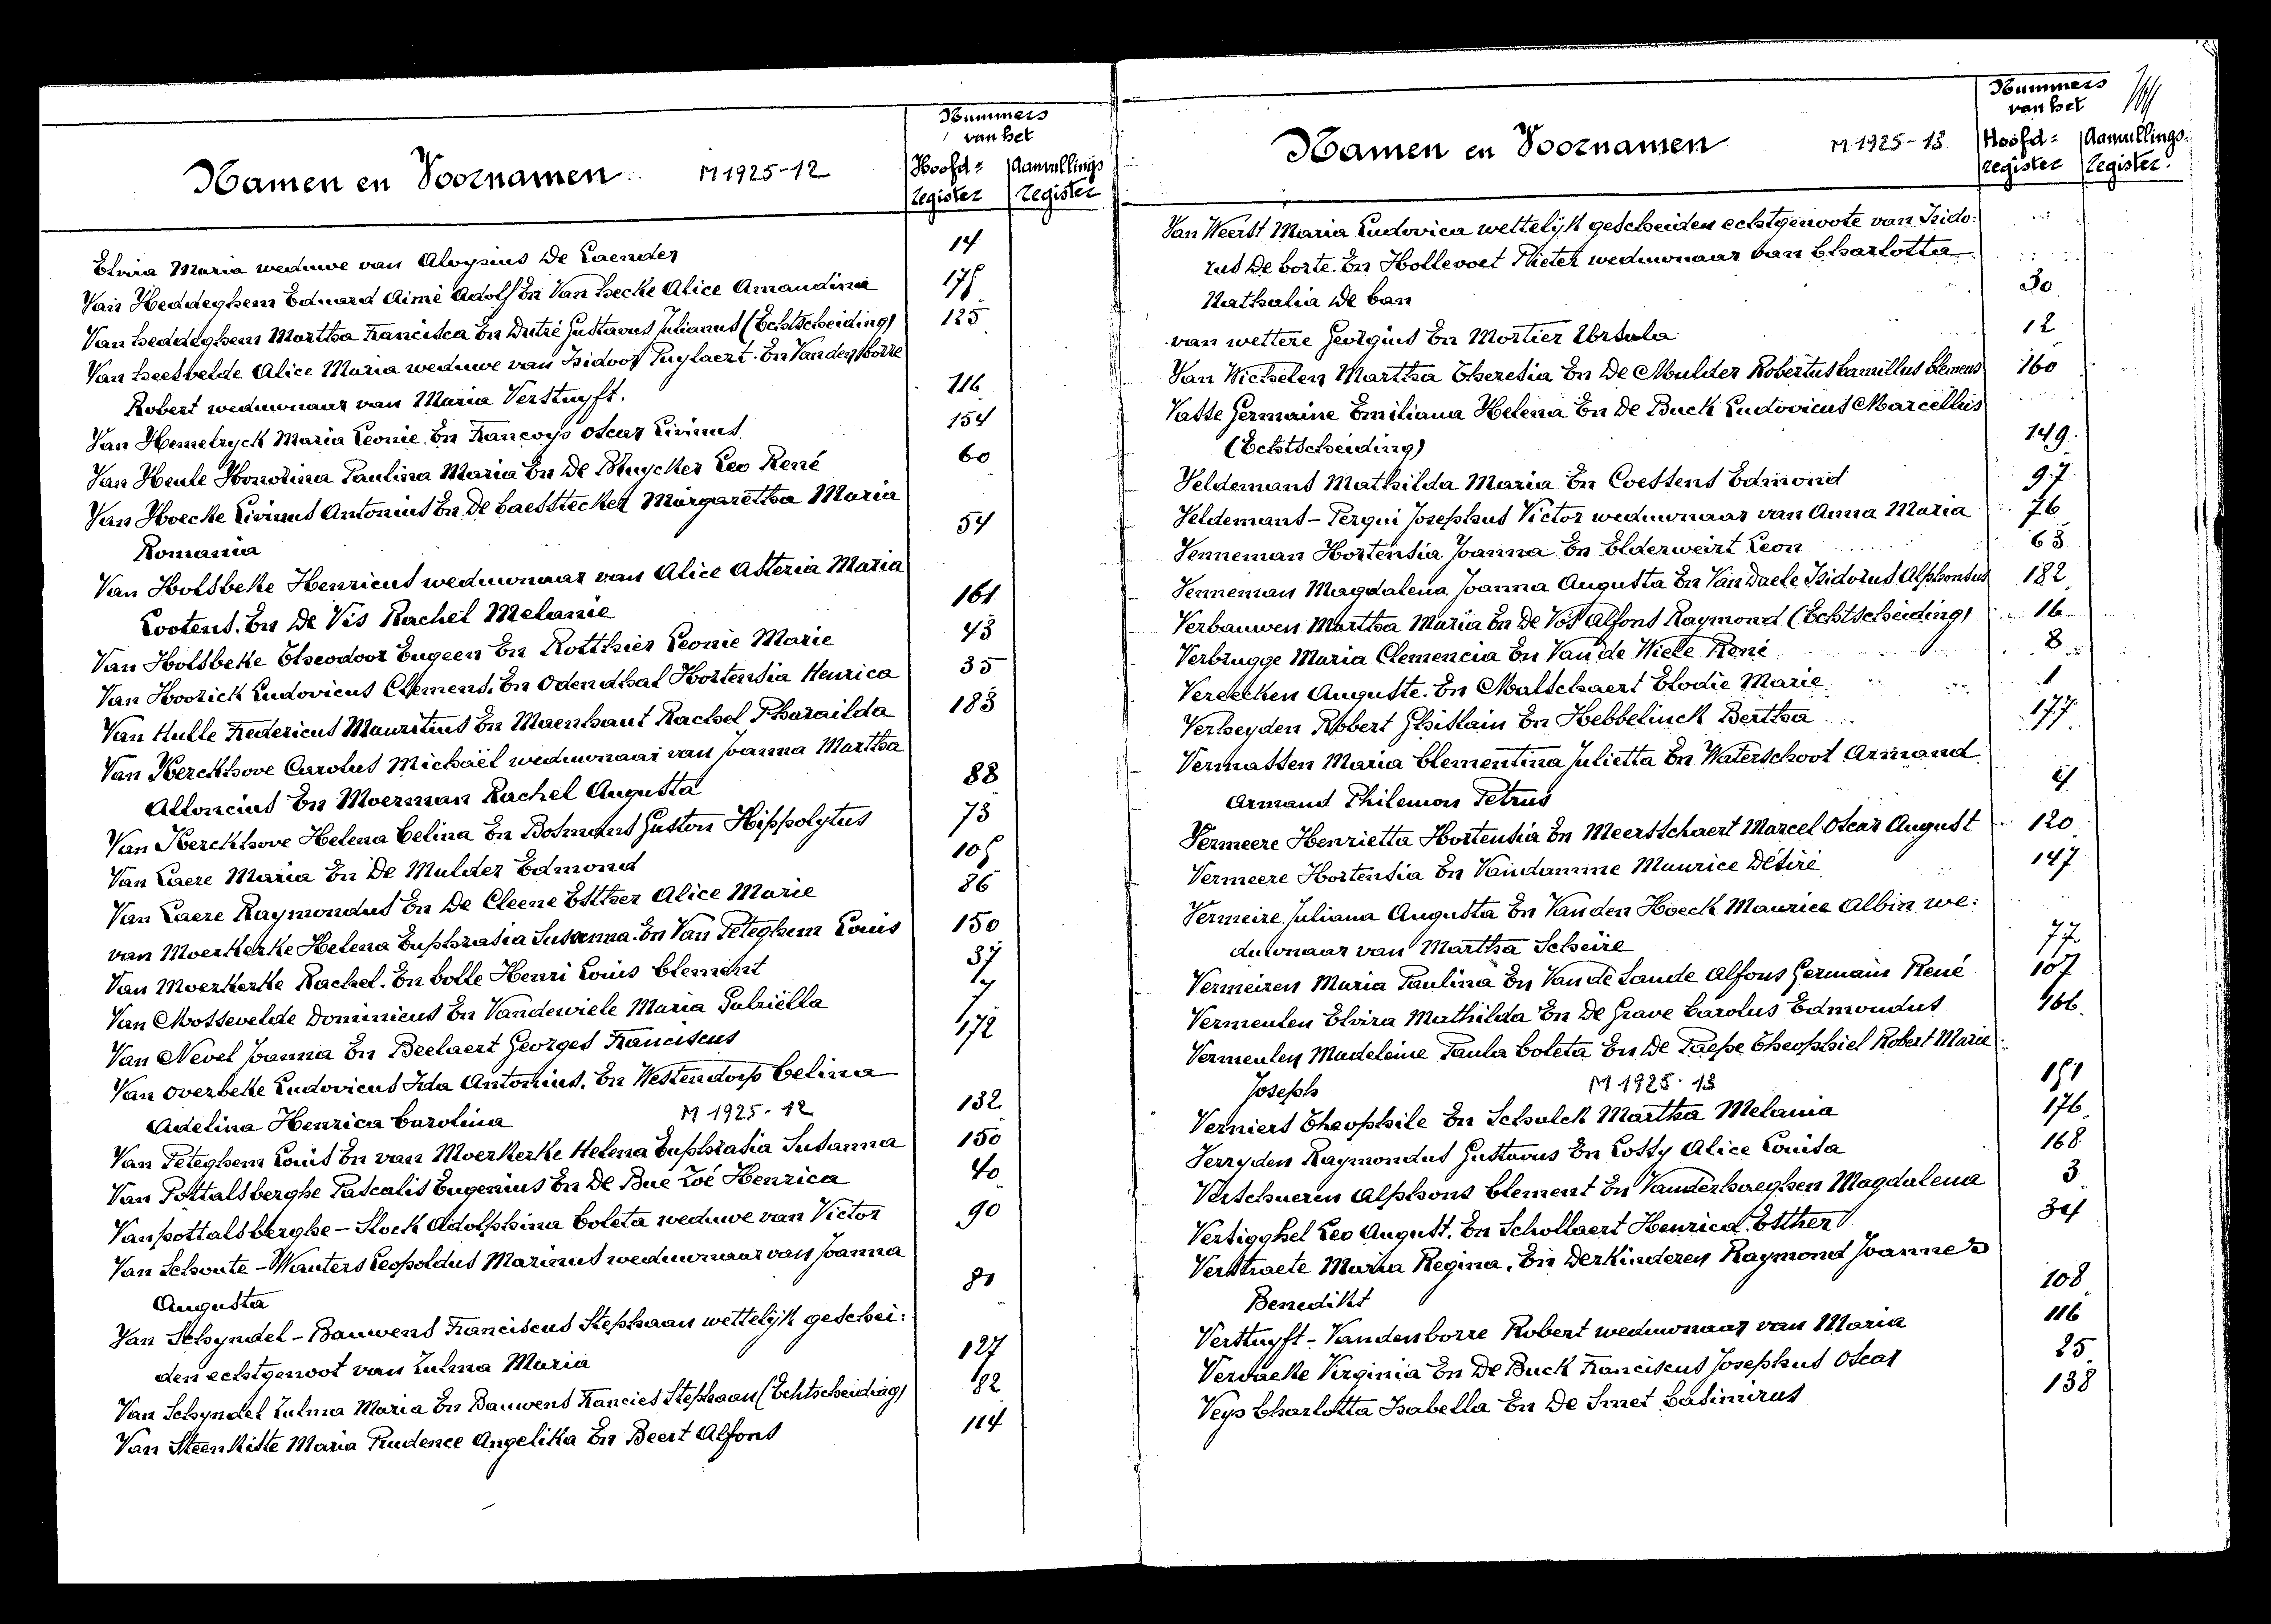 Nummers
van het
Namen en Voornamen M 1925-12
Hoofd= Aanvullings
register register
Elvira Maria weduwe van Aloysius De Caender 14
Van Heddeghem Eduard Aimé Adolf En Van hecke Alice Amandina 175
Van heddeghem Martha Francisca En Dutré Gustavus Julianus (Echtscheiding) 125
Van heesvelde Alice Maria weduwe van Isidoor Puylaert. En Vandenborre
Robert weduwnaar van Maria Verstuyft. 116
Van Hemelryck Maria Leonie En Francoys Oscar Livinus 154
Van Heule Honorina Paulina Maria En De Pluycker Leo René 60
Van Hoecke Livinus Antonius En De Caesstecker Margaretha Maria
Romania 54
Van Holsbeke Henricus weduwnaar van Alice Asteria Maria
Lootens. En De Vis Rachel Melanie 161
Van Holsbeke Theodoor Eugeen En Rotthier Leonie Marie 43
Van Hoorick Ludovicus Clemens. En Odendhal Hortensia Henrica 35
Van Hulle Fredericus Mauritius En Maenhaut Rachel Pharailda 183
Van Kerckhove Carolus Michaël weduwnaar van Joanna Martha
Alloncius En Moerman Rachel Augusta 88
Van Kerckhove Helena Celina En Bosmans Guston Hippolytus 73
Van Laere Maria En De Mulder Edmond 105
Van Laere Raymondus En De Cleene Esther Alice Marie 86
van Moerkerke Helena Euphrasia Susanna. En Van Peteghem Louis 150
Van Moerkerke Rachel. En Colle Henri Louis Clement 37
Van Mossevelde Dominicus En Vandewiele Maria Gabriëlla 7
Van Nevel Joanna En Beelaert Georges Franciscus 172
Van Overbeke Ludovicus Ida Antonius. En Westendorp Celina
Adelina Henrica Carolina M 1925-12 132
Van Peteghem Louis En van Moerkerke Helena Euphrasia Susanna 150
Van Pottalsberghe Pascalis Eugenius En De Bue Zoé Henrica 40
Vanpottalsberghe - Stock Adolphina Coleta weduwe van Victor 90
Van Schoute - Wauters Leopoldus Marinus weduwnaar van Joanna
Augusta 81
Van Schyndel - Bauwens Franciscus Stephaan wettelijk geschei:
den echtgenoot van Zulma Maria 127
Van Schyndel Zulma Maria En Bauwens Francies Stephaan (Echtscheiding) 82
Van Steenkiste Maria Prudence Angelika En Beert Alfons 114
Nummers
van het
Namen en Voornamen M 1925-13
Hoofd= Aanvullings.
register register.
Van Weerst Maria Ludovica wettelijk gescheiden echtgenoote van Isido:
rus De Corte. En Hollevoet Pieter weduwnaar van Charlotta
Nathalia De Can 30
van wettere Georgius En Mortier Ursula 12
Van Wichelen Martha Theresia En De Mulder Robertus Camillus Clemens 160
Vasse Germaine Emiliana Helena En De Buck Ludovicus Marcellus
(Echtscheiding) 149
Veldemans Mathilda Maria En Coessens Edmond 97
Veldemans - Perqui Josephus Victor weduwnaar van Anna Maria 76
Venneman Hortensia Joanna En Elderweirt Leon 63
Venneman Magdalena Joanna Augusta En Van Daele Isidorus Alphonsus 182
Verbauwen Martha Maria En De Vos Alfons Raymond (Echtscheiding) 16
Verbrugge Maria Clemencia En Van de Wiele René 8
Vereecken Auguste. En Malschaert Elodie Marie 1
Verheyden Robert Ghislain En Hebbelinck Bertha 177
Vermassen Maria Clementina Julietta En Waterschoot Armand
Armand Philemon Petrus 4
Vermeere Henrietta Hortensia En Meersschaert Marcel Oscar August 120
Vermeere Hortensia En Vandamme Maurice Désiré 147
Vermeire Juliana Augusta En Vanden Hoeck Maurice Albin we:
duwnaar van Martha Scheire 77
Vermeiren Maria Paulina En Van de Lande Alfons Germain René 107
Vermeulen Elvira Mathilda En De Grave Carolus Edmondus 166
Vermeulen Madeleine Paula Coleta En De Paepe Theophiel Robert Marie
Joseph M 1925-13 151
Verniers Theophile En Schulck Martha Melania 176
Verryden Raymondus Gustavus En Lossy Alice Louisa 168
Verschueren Alphons Clement En Vanderhaeghen Magdalena 3
Versigghel Leo August. En Schollaert Henrica Esther 34
Verstraete Maria Regina. En Derkinderen Raymond Joannes
Benedikt 108
Verstuyft - Vandenborre Robert weduwnaar van Maria 116
Vervaeke Virginia En De Buck Franciscus Josephus Oscar 25
Veys Charlotta Isabella En De Smet Casimirus 138